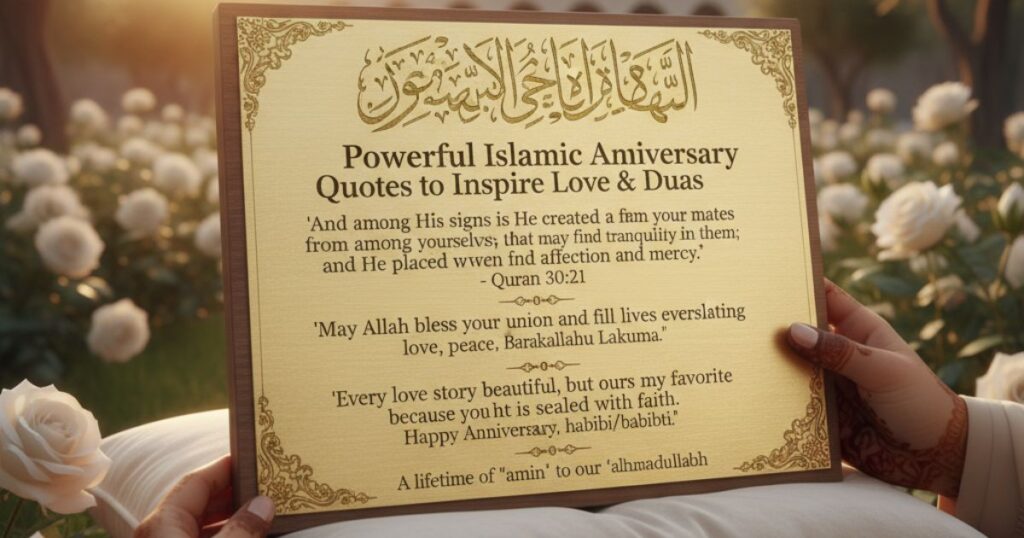 Powerful Islamic Aniversary
Quotes to Inspire Love & Duas
'And among His signs is He created a fnm your mates
from among yourselvs; that may find tranquility in them;
and He placed wwen fnd affection and mercy.'
- Quran 30:21
'May Allah bless your union and fill lives everslating
love, peace, Barakallahu Lakuma."
'Every love story beautiful, but ours my favorite
because you ht is sealed with faith.
Happy Anniversary, habibi/babibti."
A lifetime of "amin' to our 'alhmadullabh